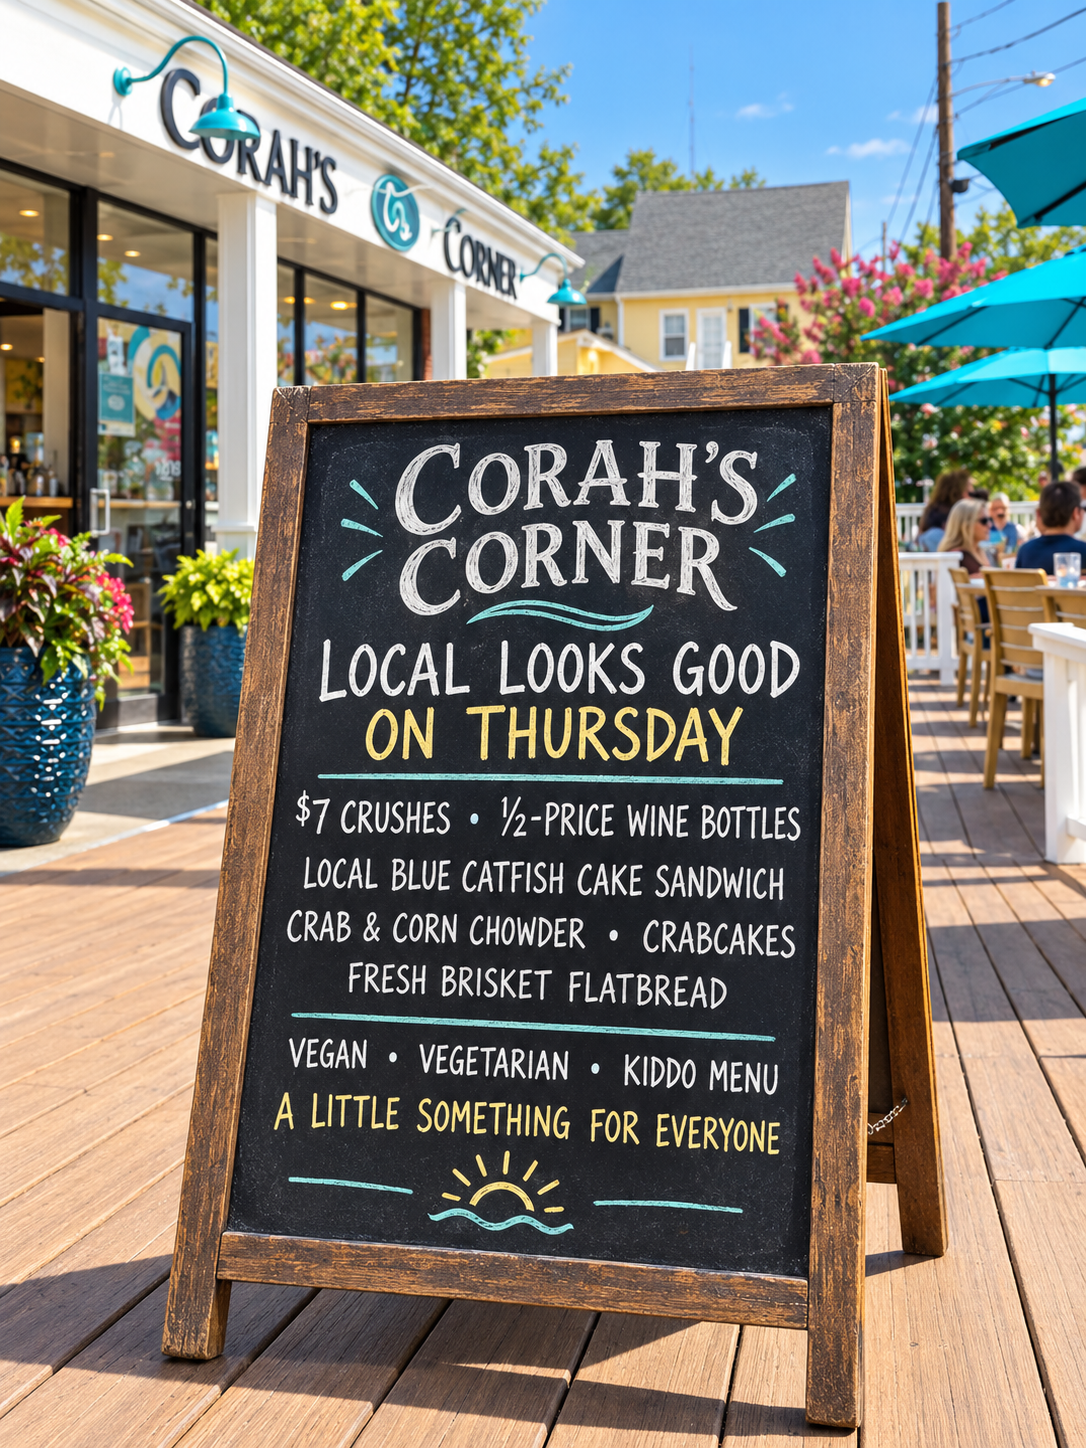 CORAH'S CORNER
CORAH'S
CORNER
LOCAL LOOKS GOOD
ON THURSDAY
$7 CRUSHES • ½-PRICE WINE BOTTLES
LOCAL BLUE CATFISH CAKE SANDWICH
CRAB & CORN CHOWDER • CRABCAKES
FRESH BRISKET FLATBREAD
VEGAN • VEGETARIAN • KIDDO MENU
A LITTLE SOMETHING FOR EVERYONE